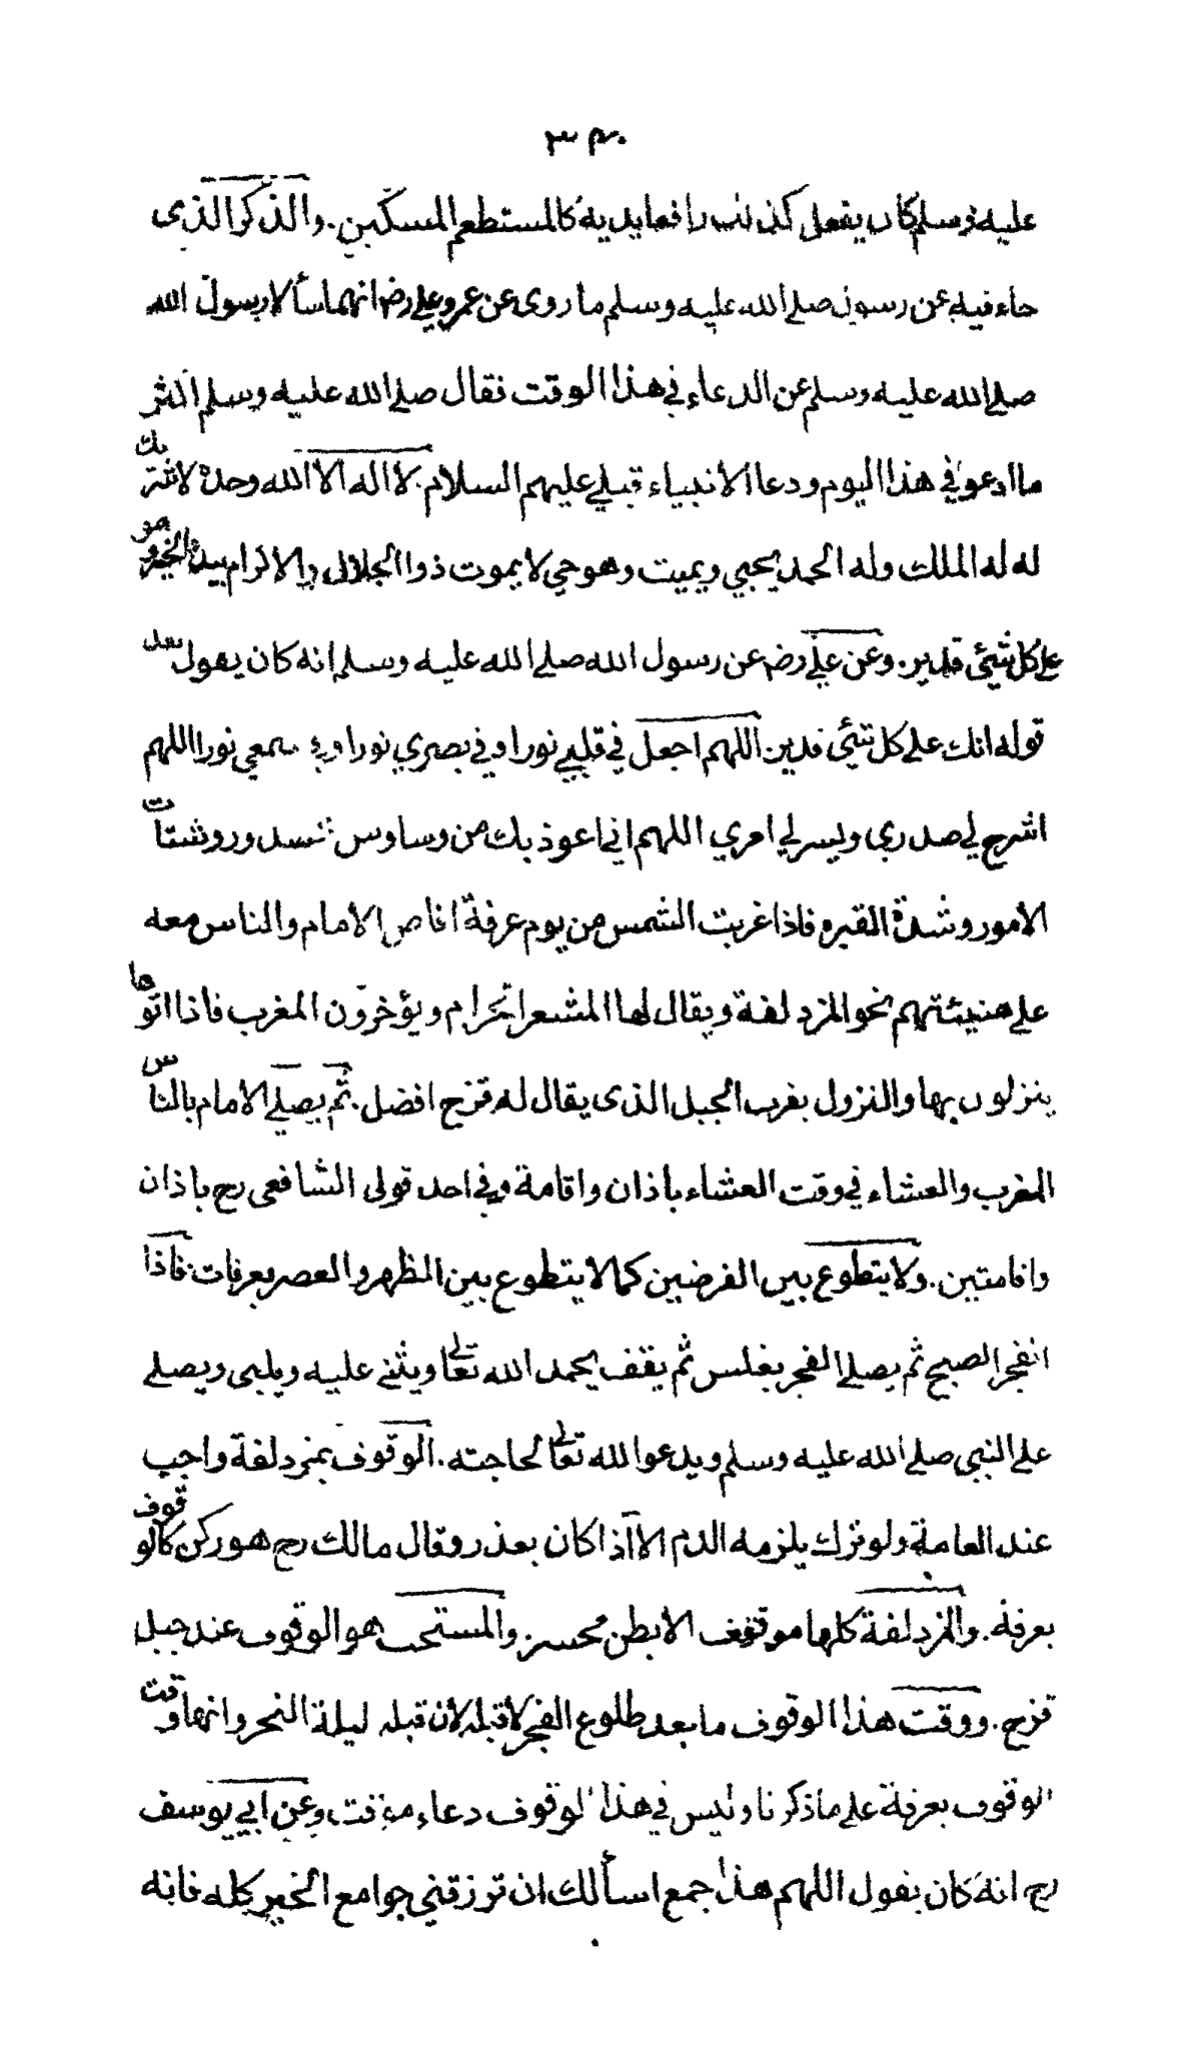 ٣٨٠
عليه وسلم كان يفعل كذلك رافعا يديه كالمستطعم المسكين. والذكر الذى
جاء فيه عن رسول صلى الله عليه وسلم ما روى عن عمر وعلي رضـ انهما سألا رسول الله
صلى الله عليه وسلم عن الدعاء في هذا الوقت فقال صلى الله عليه وسلم اكثر
ما ادعو في هذا اليوم ودعا الانبياء قبلي عليهم السلام. لا اله الا الله وحده لا شريك
له له الملك وله الحمد يحيي ويميت وهو حي لا يموت ذوا الجلال والاكرام بيده الخير وهو
على كل شيئ قدير. وعن علي رضـ عن رسول الله صلى الله عليه وسلم انه كان يقول بعد
قوله انك على كل شيئ قدير اللهم اجعل في قلبي نورا وفي بصري نورا وفي سمعي نورا اللهم
اشرح لي صدري ويسر لي امري اللهم اني اعوذ بك من وساوس الصدور وشتات
الامور وشدة القبر فاذا غربت الشمس من يوم عرفة افاض الامام والناس معه
على هنيئتهم نحو المزدلفة ويقال لها المشعر الحرام ويؤخرون المغرب فاذا اتوها
ينزلون بها والنزول بقرب الجبل الذى يقال له قزح افضل. ثم يصلي الامام بالناس
المغرب والعشاء في وقت العشاء باذان واقامة وفي احد قولى الشافعى رح باذان
واقامتين. ولا يتطوع بين الفرضين كما لا يتطوع بين الظهر والعصر بعرفات. فاذا
انفجر الصبح ثم يصلي الفجر بغلس ثم يقف يحمد الله تعالى ويثني عليه ويلبي ويصلي
على النبي صلى الله عليه وسلم ويدعو الله تعالى لحاجته. الوقوف بمزدلفة واجب
عند العامة ولو ترك يلزمه الدم الا اذا كان بعذر وقال مالك رح هو ركن كالوقوف
بعرفة. والمزدلفة كلها موقف الا بطن محسر والمستحب هو الوقوف عند جبل
قزح. ووقت هذا الوقوف ما بعد طلوع الفجر لا قبله لان قبله ليلة النحر وانها وقت
الوقوف بعرفة على ما ذكرنا وليس في هذا الوقوف دعاء مؤقت وعن ابي يوسف
رح انه كان يقول اللهم هذا جمع اسألك ان ترزقني جوامع الخير كله فانه